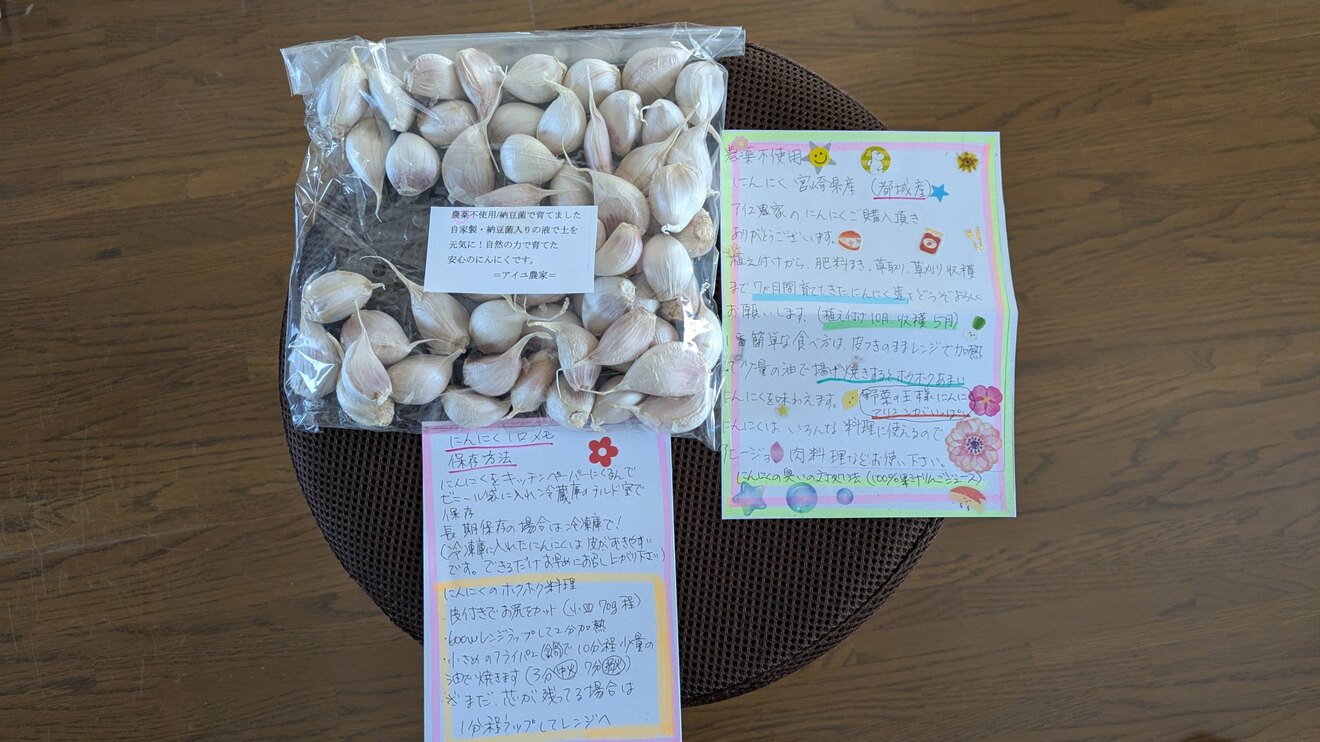 農薬不使用/納豆菌で育てました
自家製・納豆菌入りの液で土を
元気に！自然の力で育てた
安心のにんにくです。
＝アイユ農家＝
農薬不使用
にんにく 宮崎県産 (都城産)
アイユ農家のにんにくご購入頂き
ありがとうございます。
植え付けから、肥料まき、草取り、草刈り収穫
まで7か月間育ててきたにんにく達をどうぞよろしく
お願いします。(植え付け10月、収穫5月)
簡単な食べ方は皮つきのままレンジで加熱
して少量の油で揚げ焼きするとホクホクあまい
にんにくを味わえます。野菜の王様にんにく
アリシンがいっぱい
にんにくは、いろんな料理に使えるので
アヒージョ 肉料理などお使い下さい。
にんにくの臭いの対処法(100%果汁りんごジュース)
にんにく1口メモ
保存方法
にんにくをキッチンペーパーにくるんで
ビニール袋に入れ冷蔵庫チルド室で
保存
長期保存の場合は冷凍庫で!
(冷凍庫に入れたにんにくは皮がむきやすい
です。できるだけお早めにお召し上がり下さい)
にんにくのホクホク料理
・皮付きでお尻をカット(小皿70g程)
・600wレンジラップして2分加熱
・小さめのフライパン鍋で10分程少量の
油で焼きます(3分中火7分弱火)
※まだ、芯が残ってる場合は
1分程ラップしてレンジへ